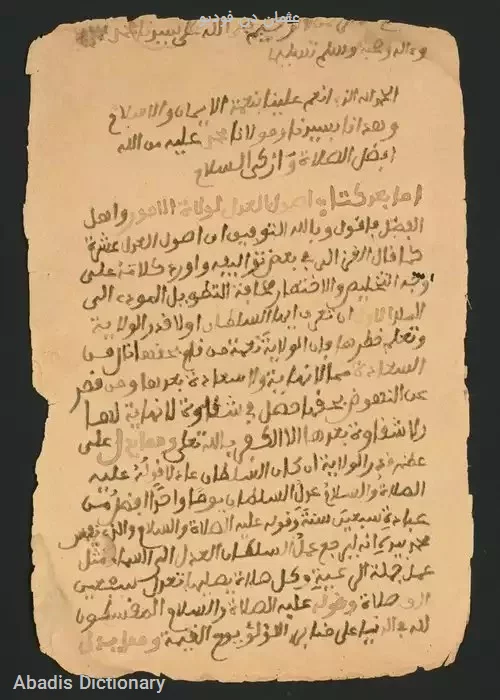 عثمان دن فودیو
وءاله وصحبه وسلم تسليما
الحمد لله الذي انعم علينا بنعمة الايمان والاسلاح
وهدانا بسيدنا ومولانا محمد عليه من الله
افضل الصلاة وازكى السلام
اما بعد كتاب اصول العدل لولاة الامور واهل
الفضل فاقول وبالله التوفيق ان اصول العدل عشرة
كما قال الغزالي في بعض تواليفه واورد كلامه على
وجه التخليص والاختصار مخافة التطويل المودى الى
الاصل الاول ان تعرف ايها السلطان اولا قدر الولاية
وتعلم خطرها فان الولاية نعمة من قام بحقها نال من
السعادة ما لا نهاية ولا سعادة بعدها ومن قصر
عن النهوض بحقها حصل في شقاوة لا نهاية لها
ولا شقاوة بعدها الا الكفر بالله تعلى ومما يدل على
عظم قدر الولاية ان كان السلطان عادلا قوله عليه
الصلاة والسلام عدل السلطان يوما واحدا افضل من
عبادة سبعين سنة وقوله عليه الصلاة والسلام والذي نفس
محمد بيده انه ليرجع عمل السلطان العدل الى السماء مثل
عمل جملة الرعية وكل صلاة يصليها تعدل سبعين
الف صلاة وقوله عليه الصلاة والسلام المقسطون
لله في الدنيا على منابر اللؤلؤ يوم القيمة ومما يدل
Abadis Dictionary